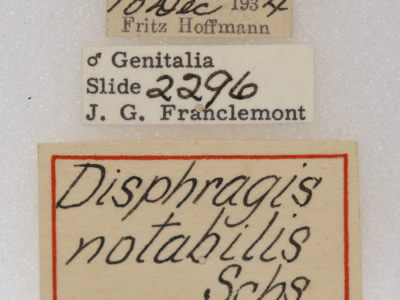 10 Dec 1934
Fritz Hoffmann
♂ Genitalia
Slide 2296
J. G. Franclemont
Disphragis
notabilis
Schs